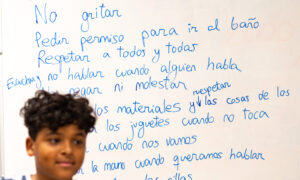 No gritar
Pedir permiso para ir al baño
Respetar a todos y todas
Escuchar y no hablar cuando alguien habla
pegar ni molestar
respetar
los materiales y las cosas de los
los juguetes cuando no toca
cuando nos vamos
la mano cuando queramos hablar